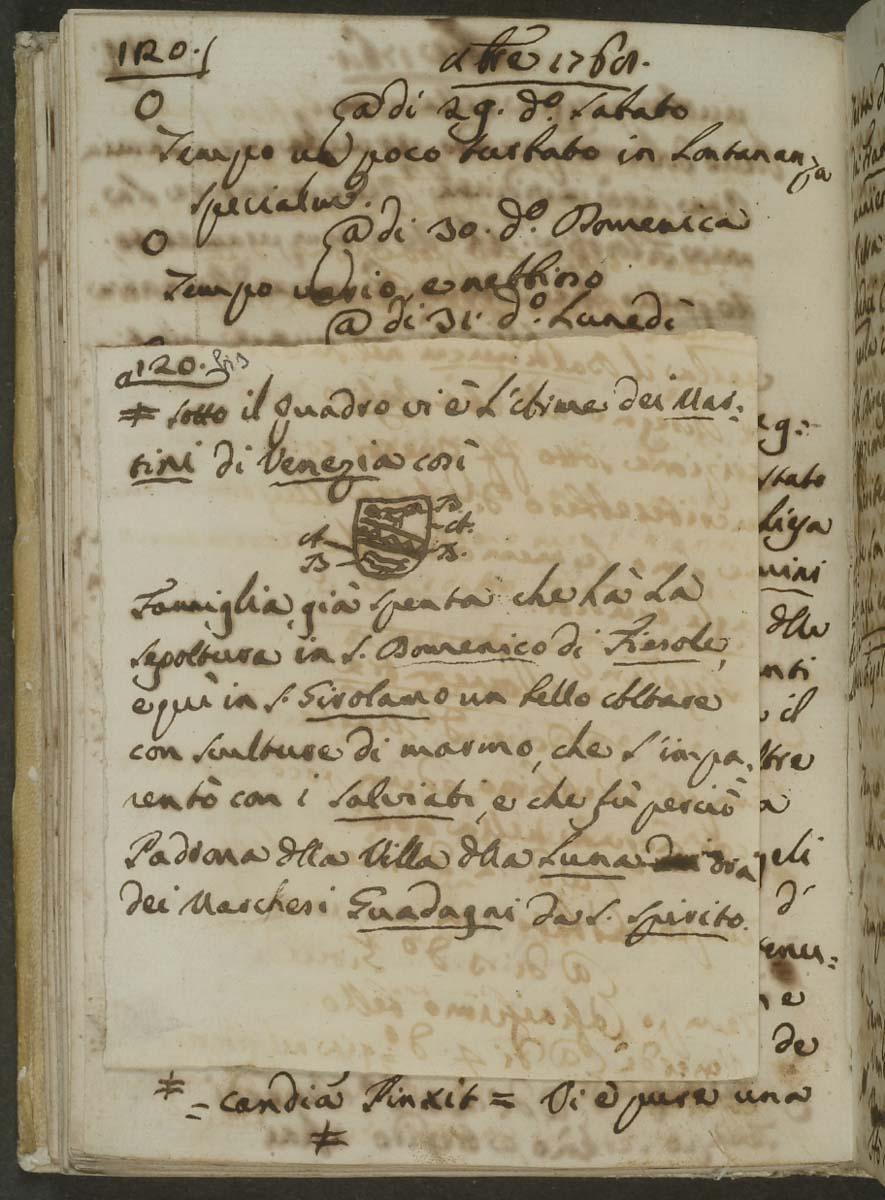 120.
8bre 1768.
@ di 29. do. Sabato
Tempo un poco turbato in Lontananza
specialme.
@ di 30. do. Domenica
Tempo vario, e nebbioso
@ di 31. do. Lunedì
120. bis
# sotto il quadro vi è L'Arme dei Mar=
tini di Venezia così
B.
A. A.
B. B.
Famiglia già spenta che hà La
sepoltura in S. Domenico di Fiesole,
e quì in S. Girolamo un bello Altare
con sculture di marmo, che s'impa=
rentò con i Salviati, e che fù perciò
Padrona della Villa della Luna ora
dei Marchesi Guadagni da S. Spirito.
eg:
stato
nini
dlla
nti
il
ltre
a
eli
d'
tenu=
e
de
# = candia Pinxit = Vi è pure una
#